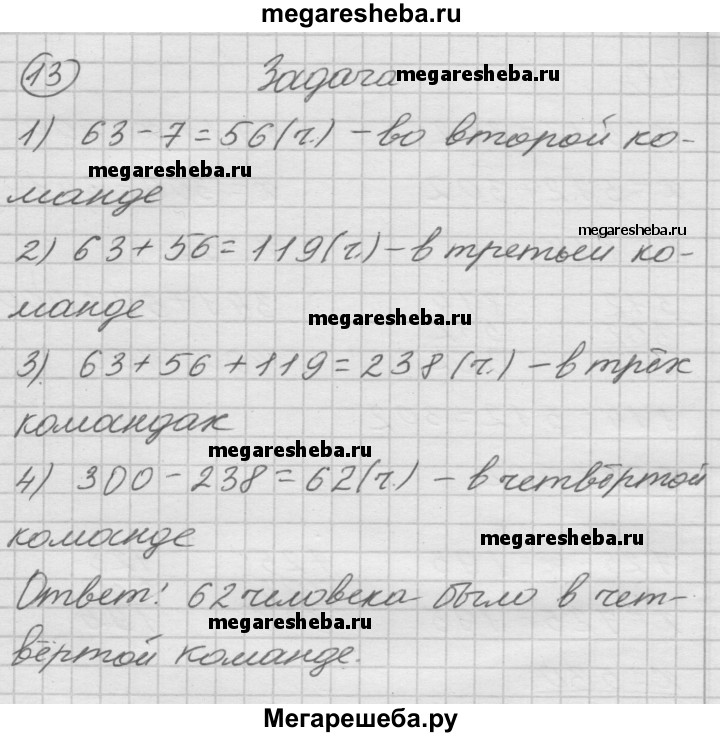 megaresheba.ru
13 Задача megaresheba.ru
1) 63 - 7 = 56 (ч.) - во второй ко-
megaresheba.ru
манде
megaresheba.ru
2) 63 + 56 = 119 (ч.) - в третьей ко-
манде
megaresheba.ru
3) 63 + 56 + 119 = 238 (ч.) - в трёх
командах
megaresheba.ru
4) 300 - 238 = 62 (ч.) - в четвёртой
команде
megaresheba.ru
Ответ: 62 человека было в чет-
megaresheba.ru
вёртой команде.
Мегарешеба.ру